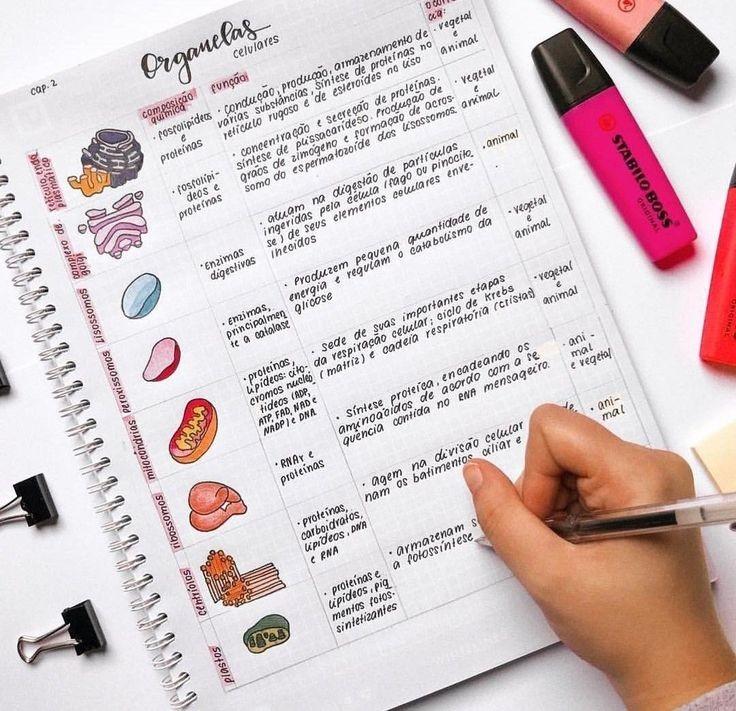 cap. 2
Organelas
celulares
composição
química
função
retículo endo
plasmático
• fosfolípídeos
e
proteínas
• condução, produção, armazenamento de
várias substâncias, síntese de proteínas no
retículo rugoso e de esteroides no liso
• vegetal
e
animal
complexo de
golgi
• fosfolipí-
deos e
proteínas
• concentração e secreção de proteínas.
síntese de polissacarídeos. Produção de
grãos de zimogênio e formação de acros-
somo do espermatozoide dos lisossomos.
• vegetal
e
animal
lisossomos
• Enzimas
digestivas
• atuam na digestão de partículas
ingeridas pela célula (fago ou pinocito
se) de seus elementos celulares enve-
lhecidos
• animal
peroxissomos
• Enzimas,
principalmen
te a catalase
• Produzem pequena quantidade de
energia e regulam o catabolismo da
glicose
• vegetal
e
animal
mitocôndrias
• proteínas,
lipídeos: cito-
cromos nucleo
tídeos (ADP,
ATP, FAD, NAD e
NADP) e DNA
• sede de suas importantes etapas
da respiração celular: ciclo de Krebs
(matriz) e cadeia respiratória (cristas)
• vegetal
e
animal
ribossomos
• RNAr e
proteínas
• síntese proteica, encadeando os
aminoácidos de acordo com a se
quência contida no RNA mensageiro.
• ani-
mal
e vegetal
centríolos
• proteínas,
carboidratos,
lipídeos, DNA
e RNA
• agem na divisão celular
nam os batimentos ciliar e
• ani-
mal
plastos
• proteínas e
lipídeos, pig
mentos fotos-
sintetizantes
• armazenam
a fotossíntese
STABILO BOSS
ORIGINAL
ORIGINAL